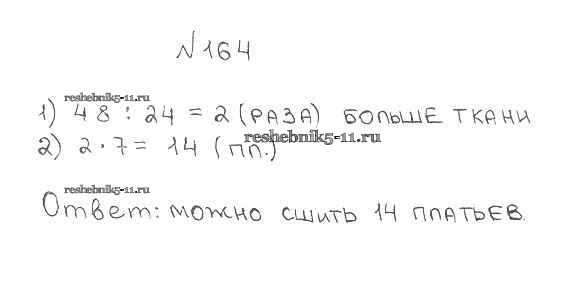 №164
reshebnik5-11.ru
1) 48 : 24 = 2 (РАЗА) БОЛЬШЕ ТКАНИ
2) 2 · 7 = 14 (ПЛ.)
reshebnik5-11.ru
reshebnik5-11.ru
Ответ: можно сшить 14 платьев.